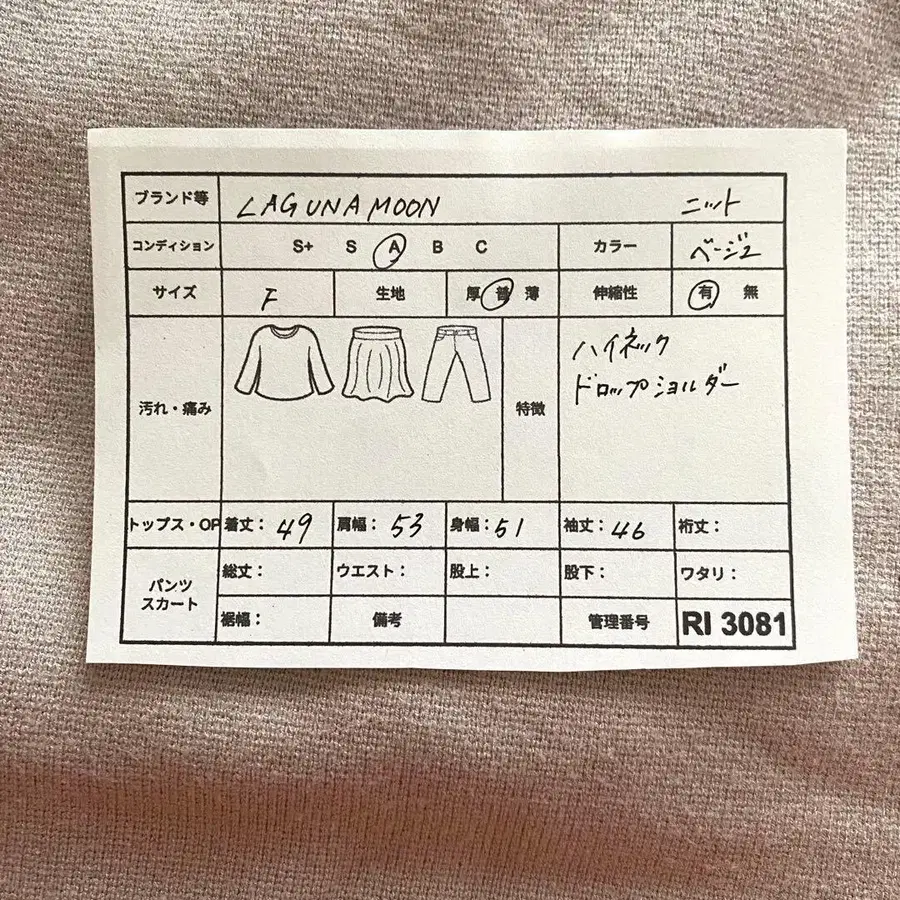 ブランド等 LAGUNAMOON ニット
コンディション S+ S A B C カラー ベージュ
サイズ F 生地 厚 普 薄 伸縮性 有 無
汚れ・痛み 特徴 ハイネック
ドロップショルダー
トップス・OP 着丈: 49 肩幅: 53 身幅: 51 袖丈: 46 裄丈:
パンツ
スカート
総丈: ウエスト: 股上: 股下: ワタリ:
裾幅: 備考 管理番号 RI 3081